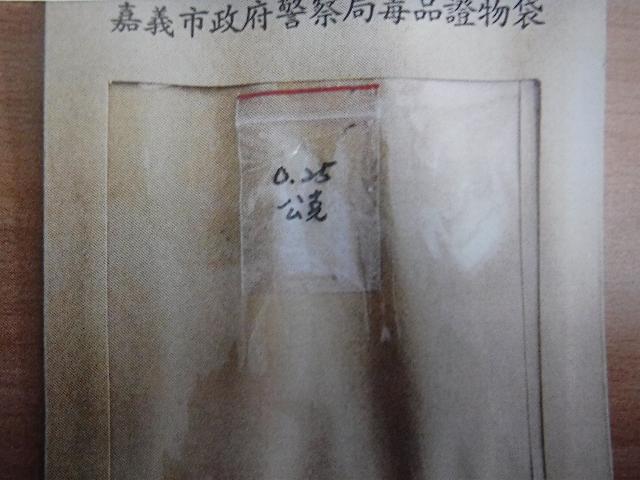 嘉義市政府警察局毒品證物袋
0.25
公克